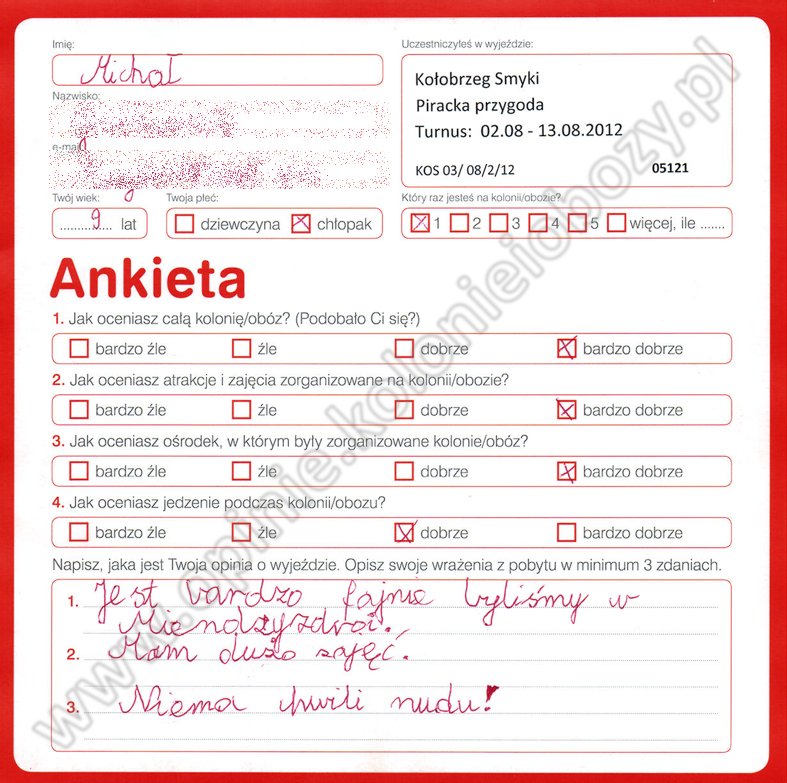 Imię:
Michał
Nazwisko:
e-mail
Twój wiek:
9 lat
Twoja płeć:
dziewczyna chłopak
Uczestniczyłeś w wyjeździe:
Kołobrzeg Smyki
Piracka przygoda
Turnus: 02.08 - 13.08.2012
KOS 03/ 08/2/12 05121
Który raz jesteś na kolonii/obozie?
1 2 3 4 5 więcej, ile .......
Ankieta
1. Jak oceniasz całą kolonię/obóz? (Podobało Ci się?)
bardzo źle źle dobrze bardzo dobrze
2. Jak oceniasz atrakcje i zajęcia zorganizowane na kolonii/obozie?
bardzo źle źle dobrze bardzo dobrze
3. Jak oceniasz ośrodek, w którym były zorganizowane kolonie/obóz?
bardzo źle źle dobrze bardzo dobrze
4. Jak oceniasz jedzenie podczas kolonii/obozu?
bardzo źle źle dobrze bardzo dobrze
Napisz, jaka jest Twoja opinia o wyjeździe. Opisz swoje wrażenia z pobytu w minimum 3 zdaniach.
1. Jest bardzo fajnie byliśmy w
Miendzyzdroi.
2. Mam dużo zajęć.
3. Niema chwili nudu!
www.opinie.kolonieiobozy.pl